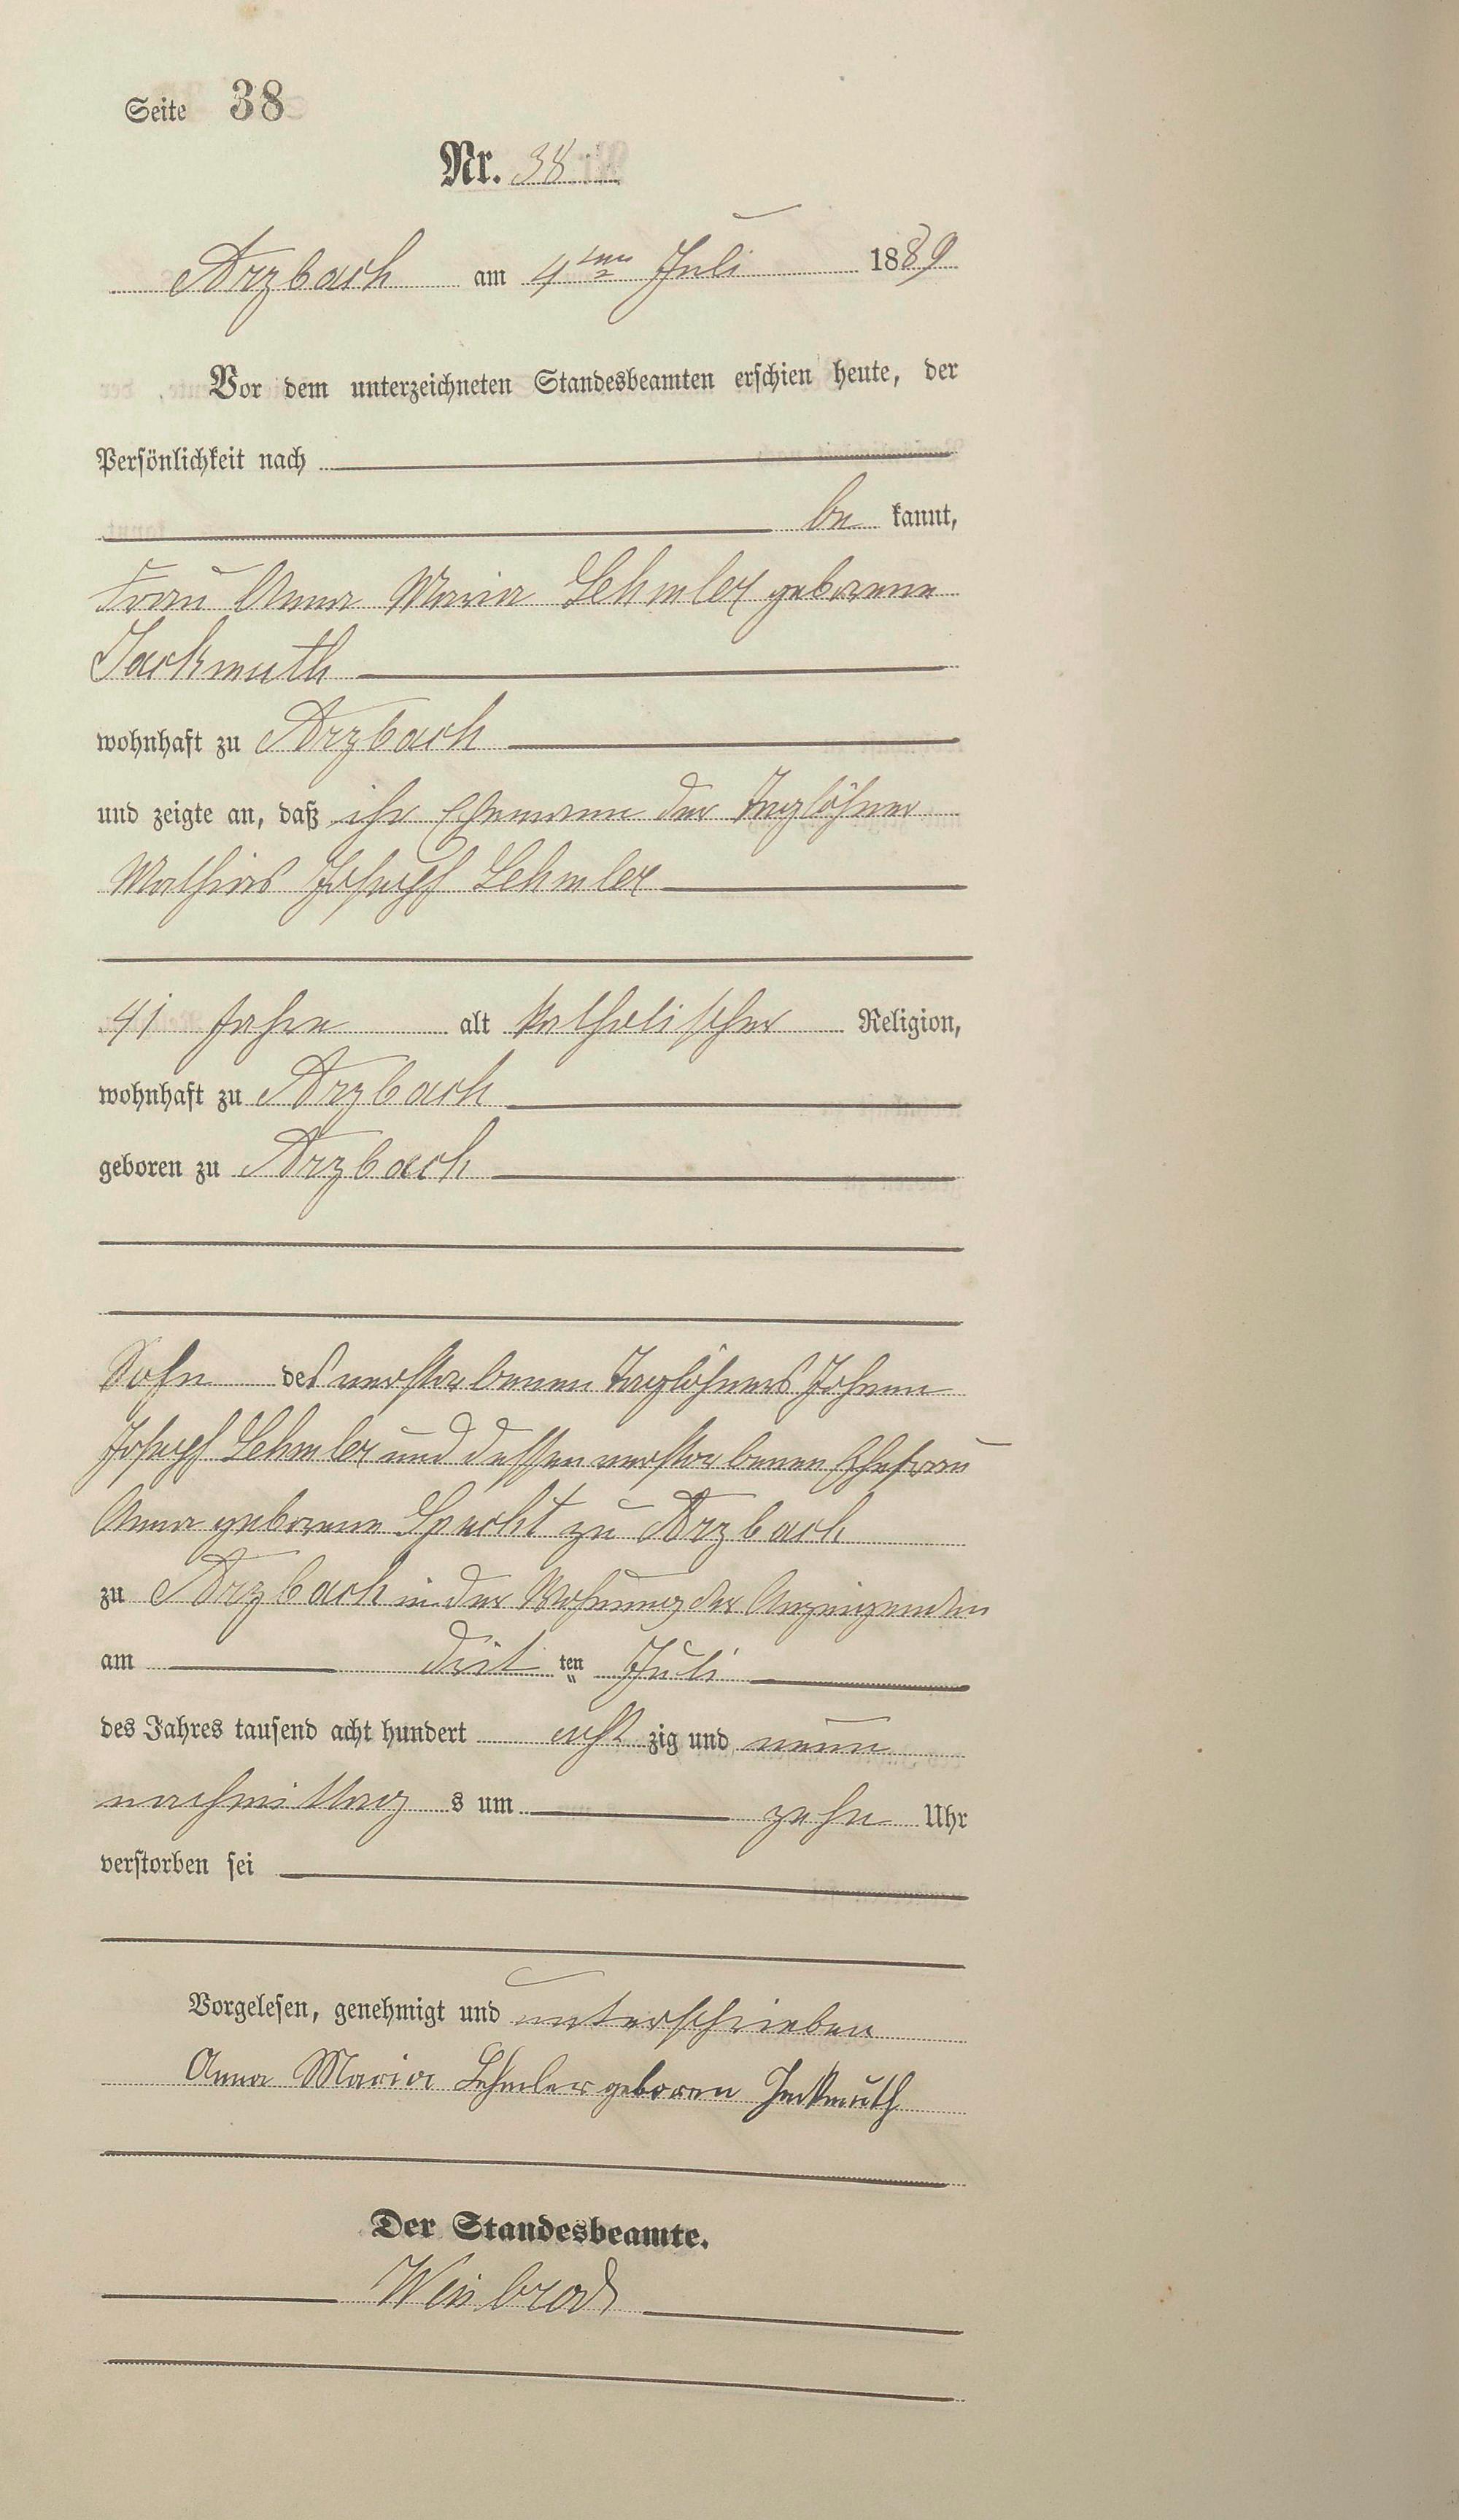 Seite 38
Nr. 38
Arzbach am 4ten Juli 1889
Vor dem unterzeichneten Standesbeamten erschien heute, der
Persönlichkeit nach
be kannt,
Frau Anna Maria Lehmler geborene
Jackmuth
wohnhaft zu Arzbach
und zeigte an, daß ihr Ehemann der Taglöhner
Mathias Joseph Lehmler
41 Jahre alt katholischer Religion,
wohnhaft zu Arzbach
geboren zu Arzbach
Sohn des verstorbenen Taglöhners Johann
Joseph Lehmler und dessen verstorbenen Ehefrau
Anna geborene Specht zu Arzbach
zu Arzbach in der Wohnung der Anzeigenden
am drit ten Juli
des Jahres tausend acht hundert acht zig und neun
nachmittag s um zehn Uhr
verstorben sei
Vorgelesen, genehmigt und unterschrieben
Anna Maria Lehmler geboren Jackmuth
Der Standesbeamte.
Weisbrod